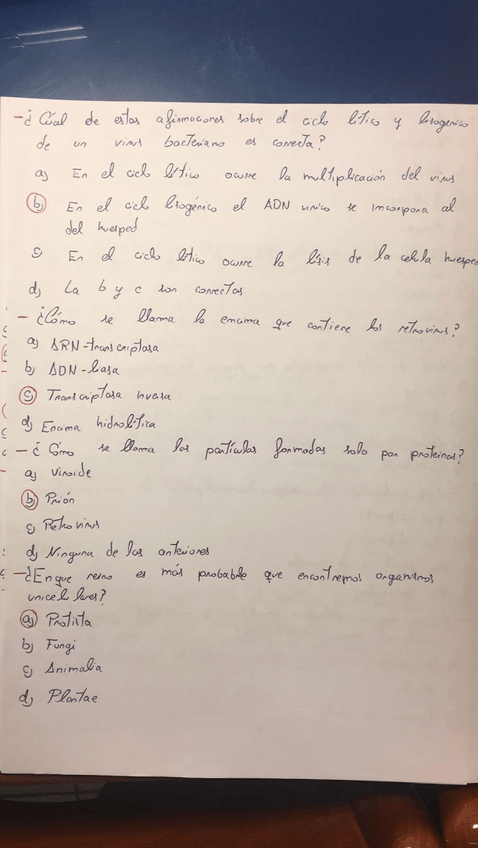 -¿Cúal de estas afirmaciones sobre el ciclo lítico y lisogénico
de un virus bacteriano es correcta?
a) En el ciclo lítico ocurre la multiplicación del virus
b) En el ciclo lisogénico el ADN vírico se incorpora al
del huesped
c) En el ciclo lítico ocurre la lisis de la celula huesped
d) La b y c son correctas
- ¿Cómo se llama la encima que contiene los retrovirus?
a) ARN-transcriptasa
b) ADN-lasa
c) Transcriptasa inversa
d) Encima hidrolítica
- ¿Cómo se llama las partículas formadas solo por proteinas?
a) Viroide
b) Prión
c) Retrovirus
d) Ninguna de las anteriores
-¿En que reino es más probable que encontremos organismos
unicelulares?
a) Protista
b) Fungi
c) Animalia
d) Plantae